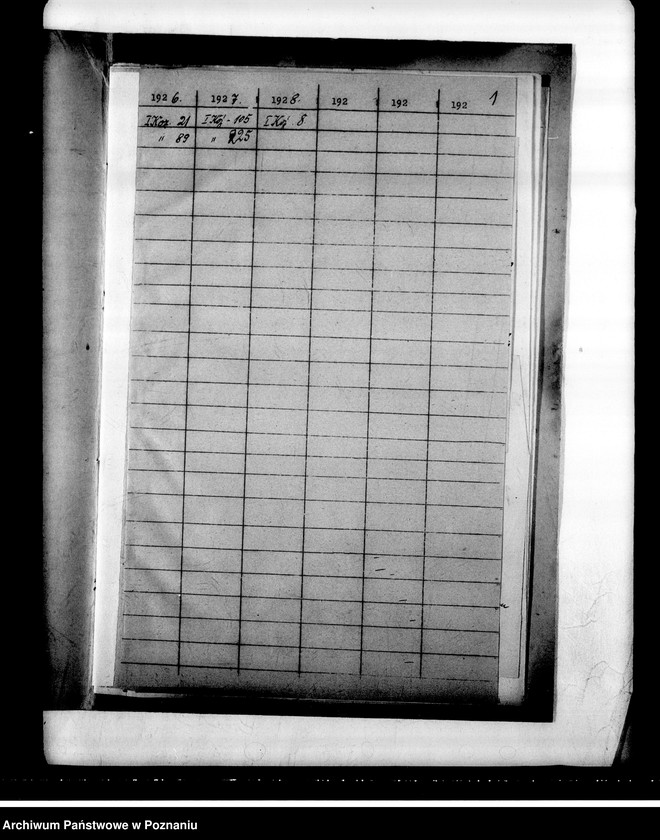 1926. 1927. 1928. 192 192 192 1
I Koz. 21 I Koj - 105 I Koj 8
" 89 " 225
Archiwum Państwowe w Poznaniu